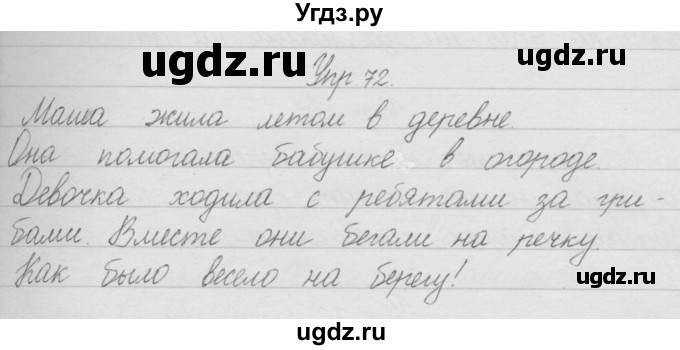 Угдз.ру
ugdz.ru ugdz.ru
Упр 72.
Маша жила летом в деревне.
Она помогала бабушке в огороде.
ugdz.ru ugdz.ru
Девочка ходила с ребятами за гри-
бами. Вместе они бегали на речку.
Как было весело на берегу!
ugdz.ru ugdz.ru
ugdz.ru